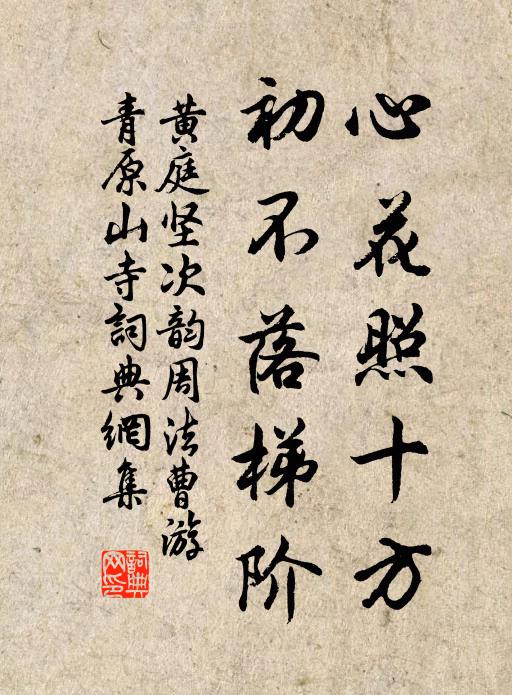 心花照十方
初不落梯阶
黄庭坚次韵周法曹游
青原山寺詞典網集
詞典网印